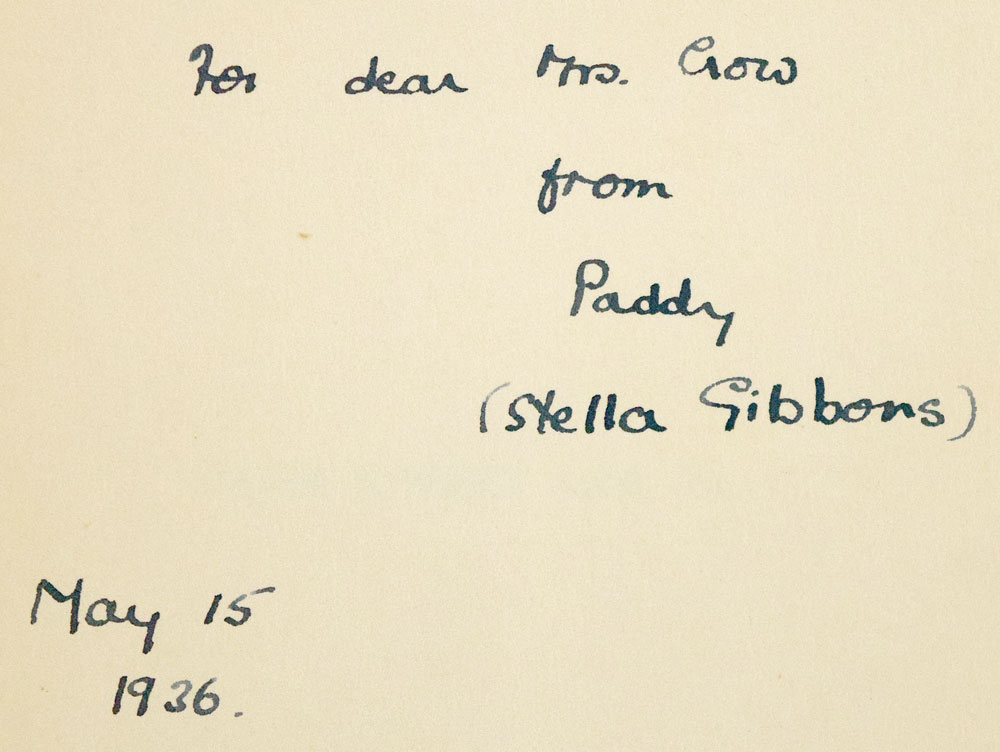 For dear Mrs. Crow
from
Paddy
(Stella Gibbons)
May 15
1936.